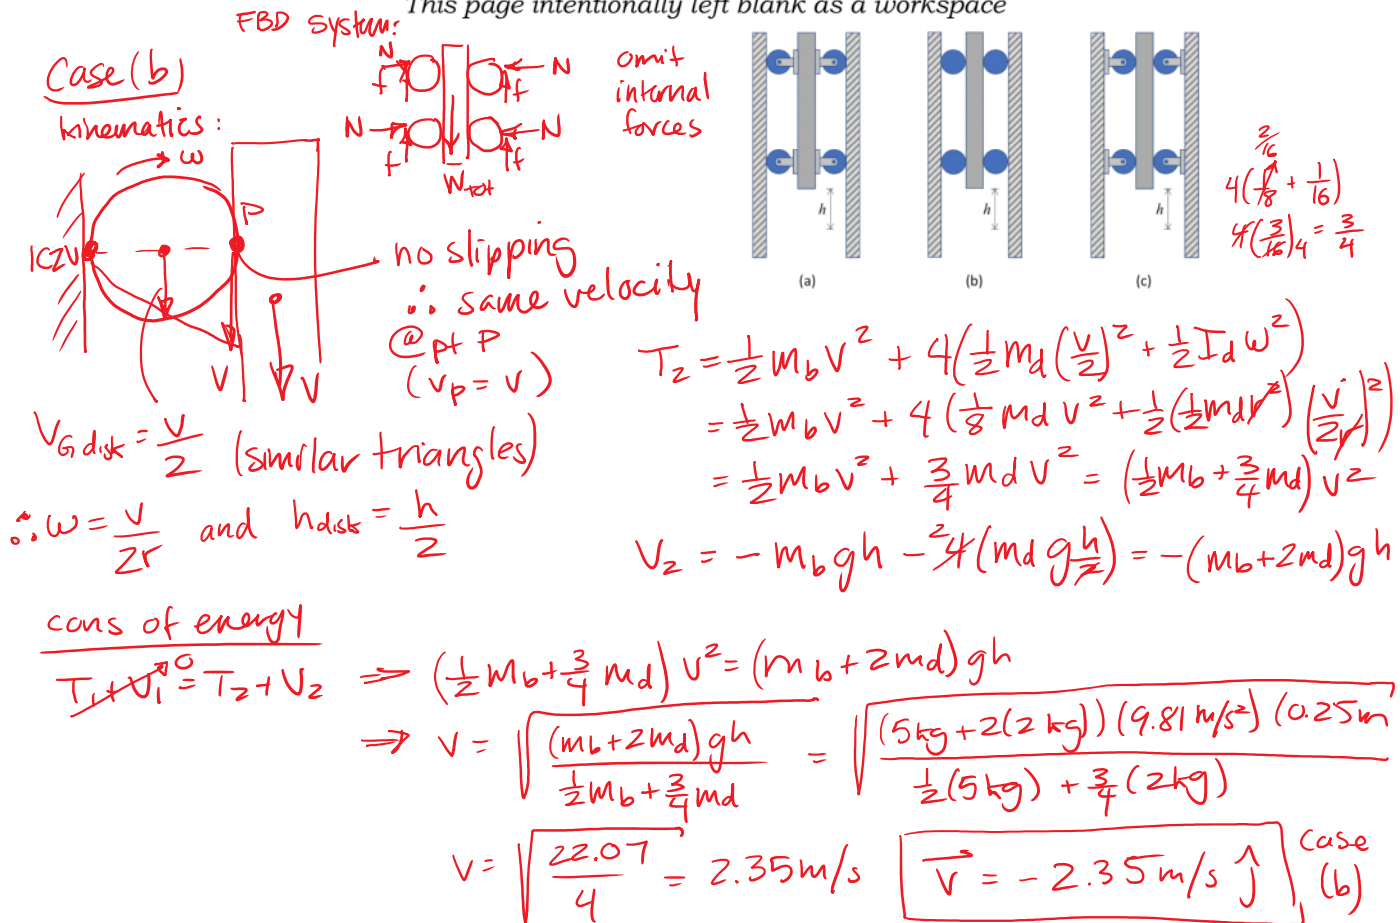 This page intentionally left blank as a workspace
FBD system:
Case (b)
N
N
f
f
N
N
f
f
W_tot
omit
internal
forces
h
h
h
(a)
(b)
(c)
2/16
4(1/8 + 1/16)
4(3/16)4 = 3/4
kinematics:
ω
P
ICZV
V
V
no slipping
∴ same velocity
@ pt P
(v_p = v)
V_G disk = v/2 (similar triangles)
∴ ω = v/2r and h_disk = h/2
T₂ = 1/2 m_b v² + 4(1/2 m_d (v/2)² + 1/2 I_d ω²)
= 1/2 m_b v² + 4(1/8 m_d v² + 1/2(1/2 m_d r²)(v/2r)²)
= 1/2 m_b v² + 3/4 m_d v² = (1/2 m_b + 3/4 m_d) v²
V₂ = - m_b gh - 2 4(m_d g h/2) = -(m_b + 2m_d)gh
cons of energy
T₁ + V₁ 0 = T₂ + V₂ ⇒ (1/2 m_b + 3/4 m_d) v² = (m_b + 2m_d) gh
⇒ v = √((m_b + 2m_d) gh / (1/2 m_b + 3/4 m_d)) = √((5kg + 2(2kg))(9.81 m/s²)(0.25m / (1/2(5kg) + 3/4(2kg)))
v = √(22.07/4) = 2.35 m/s
v⃗ = - 2.35 m/s ĵ
case
(b)